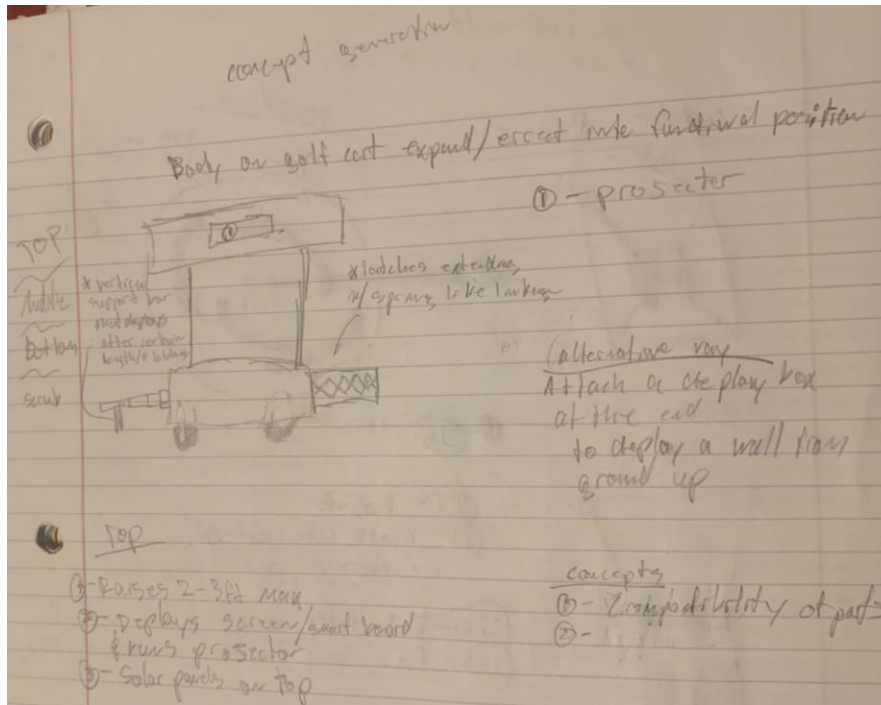 concept generation
Body on golf cart expand/errect into functional position
① - prosecter
TOP
Middle
bottom
scrub
* vertical
support bar
that deploys
after certain
* latches extending
w/ springs, like
(alternative way
Attach a deploy box
at the end
to deploy a wall from
ground up
TOP
① - Raises 2-3ft max
② - Deploys screen/smart board
& runs prosector
③ - Solar panels on top
concepts
① - Compatibility of parts
② -